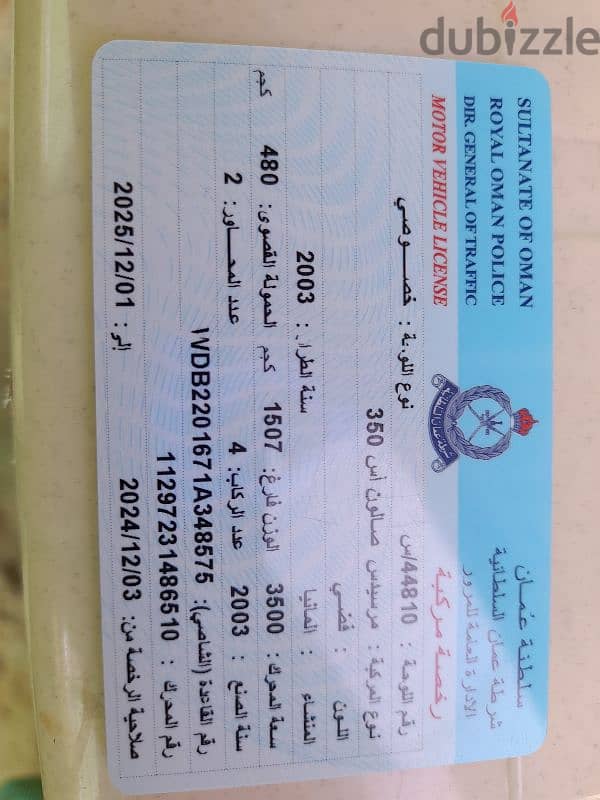 dubizzle
SULTANATE OF OMAN
ROYAL OMAN POLICE
DIR. GENERAL OF TRAFFIC
MOTOR VEHICLE LICENSE
سلطنة عُمان
شرطة عمان السلطانية
الإدارة العامة للمرور
رخصة مركبة
رقم اللوحة : 44810/س نوع اللوحة : خصوصي
نوع المركبة : مرسيدس صالون أس 350
اللون : فضي
المنشاء : المانيا سنة الطراز : 2003
سعة المحرك : 3500 الوزن فارغ: 1507 كجم الحمولة القصوى: 480 كجم
سنة الصنع : 2003 عدد الركاب: 4 عدد المحاور: 2
رقم القاعدة (الشاصي): WDB2201671A348575
رقم المحرك : 11297231486510
صلاحية الرخصة من: 2024/12/03 إلى: 2025/12/01